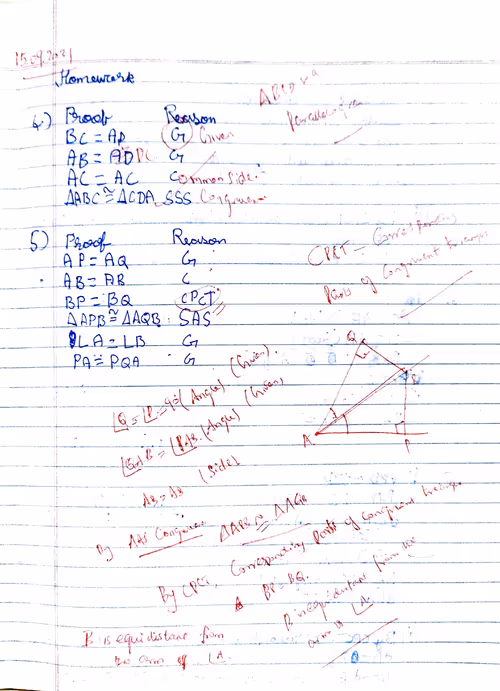 15.09.2021
Homework
4) Proof Reason
ABCD is a
Parallelogram
BC = AD G Given
AB = AD DC G
AC = AC Common side.
ΔABC ≅ ΔCDA, SSS Congruence
5) Proof Reason
AP = AQ G
AB = AB C
BP = BQ CPCT
ΔAPB ≅ ΔAQB SAS
∠A = ∠B G
PA = PQA G
CPCT - Corresponding
Parts of Congruent triangles
Q
B
A
P
∠Q = ∠P = 90 (Angle) (Given).
∠QAB = ∠PAB (Angle) (Given)
AB = AB (Side)
By AAS Congruence ΔAPB ≅ ΔAQB
By CPCT, Corresponding parts of congruent triangles
BP = BQ.
B is equidistant from the
arm is ∠A.
B is equidistant from
the arm of ∠A.